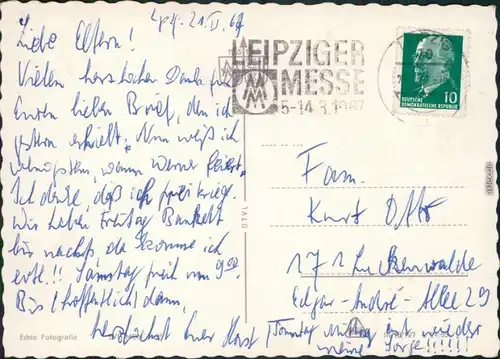 Lpz. 21. II. 67
Liebe Eltern!
Vielen herzlichen Dank für
Euren lieben Brief, den ich
gestern erhielt. Nun weiß ich
wenigstens, wann Werner feiert.
Ich denke, daß ich frei krieg.
Wir haben Freitag Bankett
bis nachts, da komme ich
evtl.!! Samstag früh um 9⁰⁰
Bis (hoffentlich) dann!
herzlichst Euer Horst
(Sonntag Mittag erst wieder
meine Sorge!!!!!)
LEIPZIGER
MESSE
5.-14.3.1967
DEUTSCHE
DEMOKRATISCHE REPUBLIK
10
Fam.
Kurt Otto
171 Luckenwalde
Edgar-André-Allee 29
DTVL
Echte Fotografie